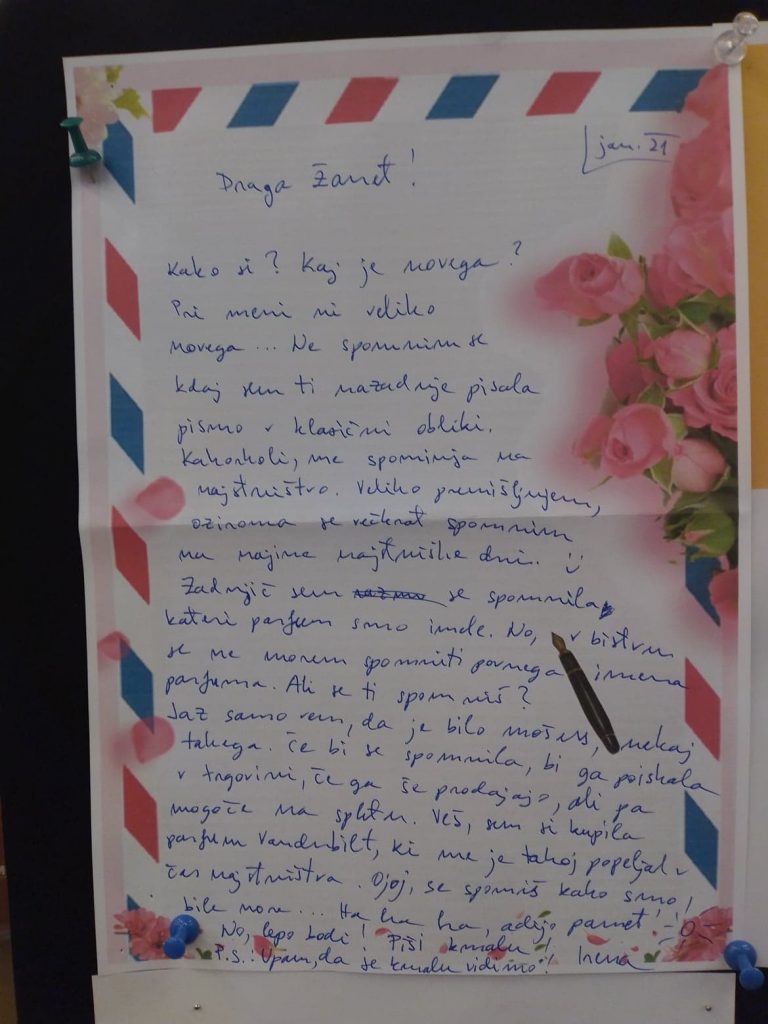 jan. 21
Draga Žanet!
Kako si? Kaj je novega?
Pri meni ni veliko
novega... Ne spomnim se
kdaj sem ti nazadnje pisala
pismo v klasični obliki.
Kakorkoli, me spominja na
najstništvo. Veliko premišljujem,
oziroma se večkrat spomnim
na najine najstniške dni.
Zadnjič sem se spomnila,
kateri parfum smo imele. No, v bistvu
se ne morem spomniti pravega imena
parfuma. Ali se ti spomniš?
Jaz samo vem, da je bilo nekaj
takega. Če bi se spomnila, bi ga poiskala
v trgovini, če ga še prodajajo, ali pa
mogoče na spletu. Veš, sem si kupila
parfum Vanderbilt, ki me je takoj popeljal v
čas najstništva. Ojoj, se spomiš kako smo
bile nore... Ha ha ha, adijo pamet!
No, lepo bodi! Piši kmalu!
P.s.: Upam, da se kmalu vidimo! Irena